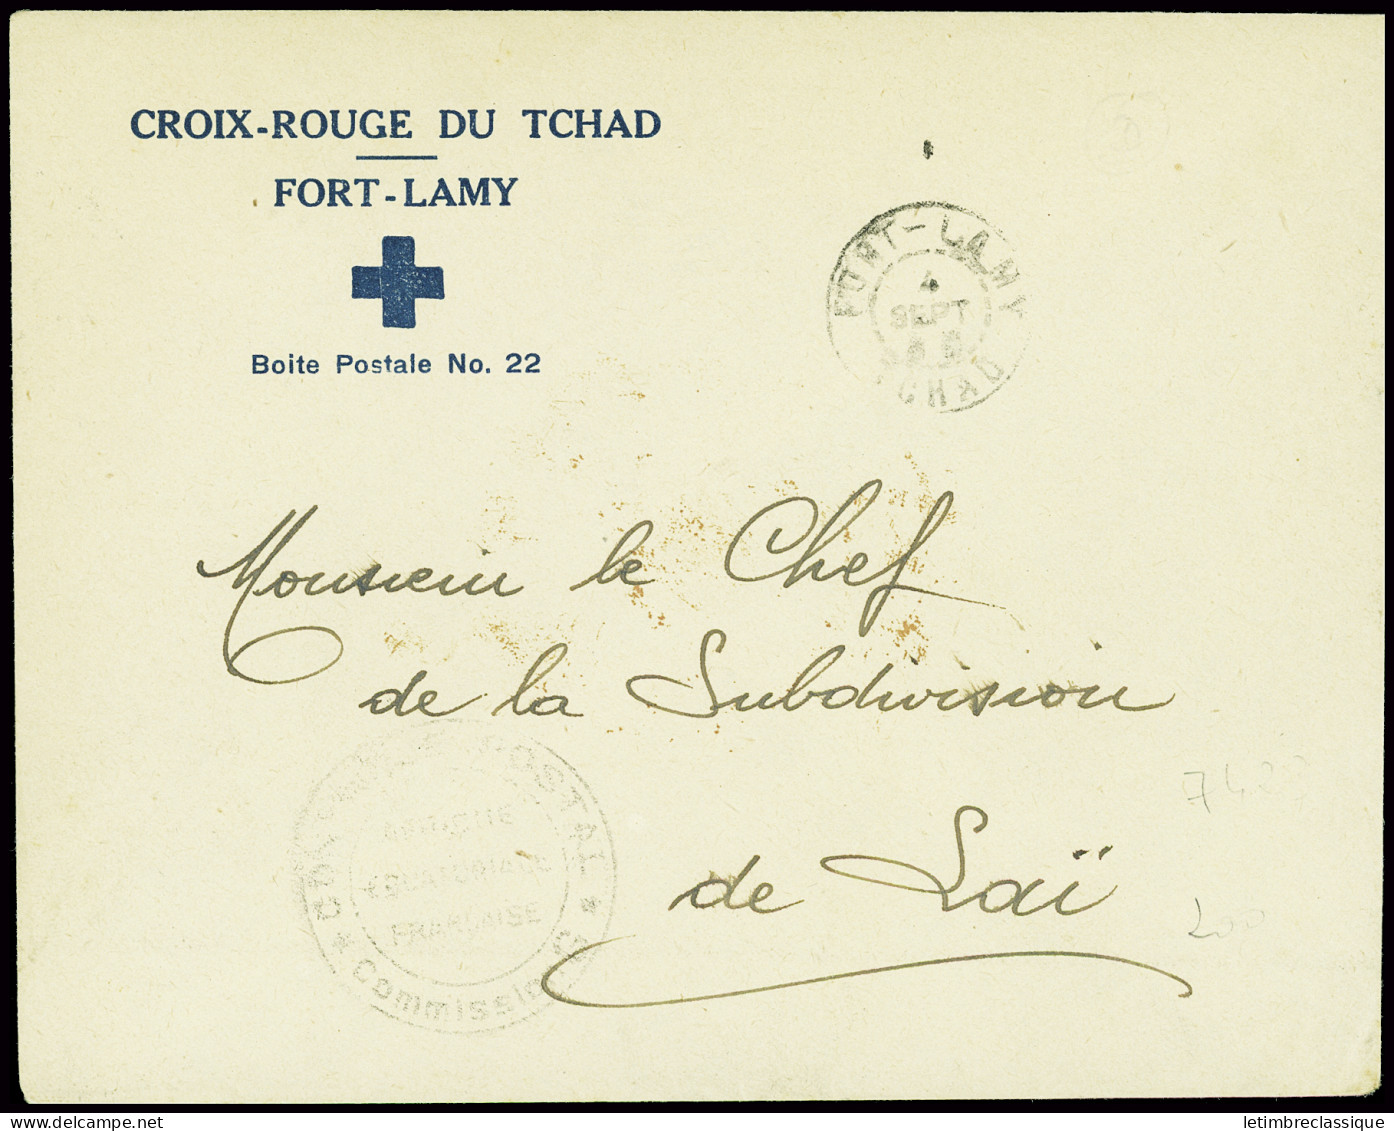 CROIX-ROUGE DU TCHAD
FORT-LAMY
Boite Postale No. 22
FORT-LAMY
4
SEPT
TCHAD
Monsieur le Chef
de la Subdivision
de Laï
POSTAL
AFRIQUE
EQUATORIALE
FRANÇAISE
Commission
200
letimbreclassique